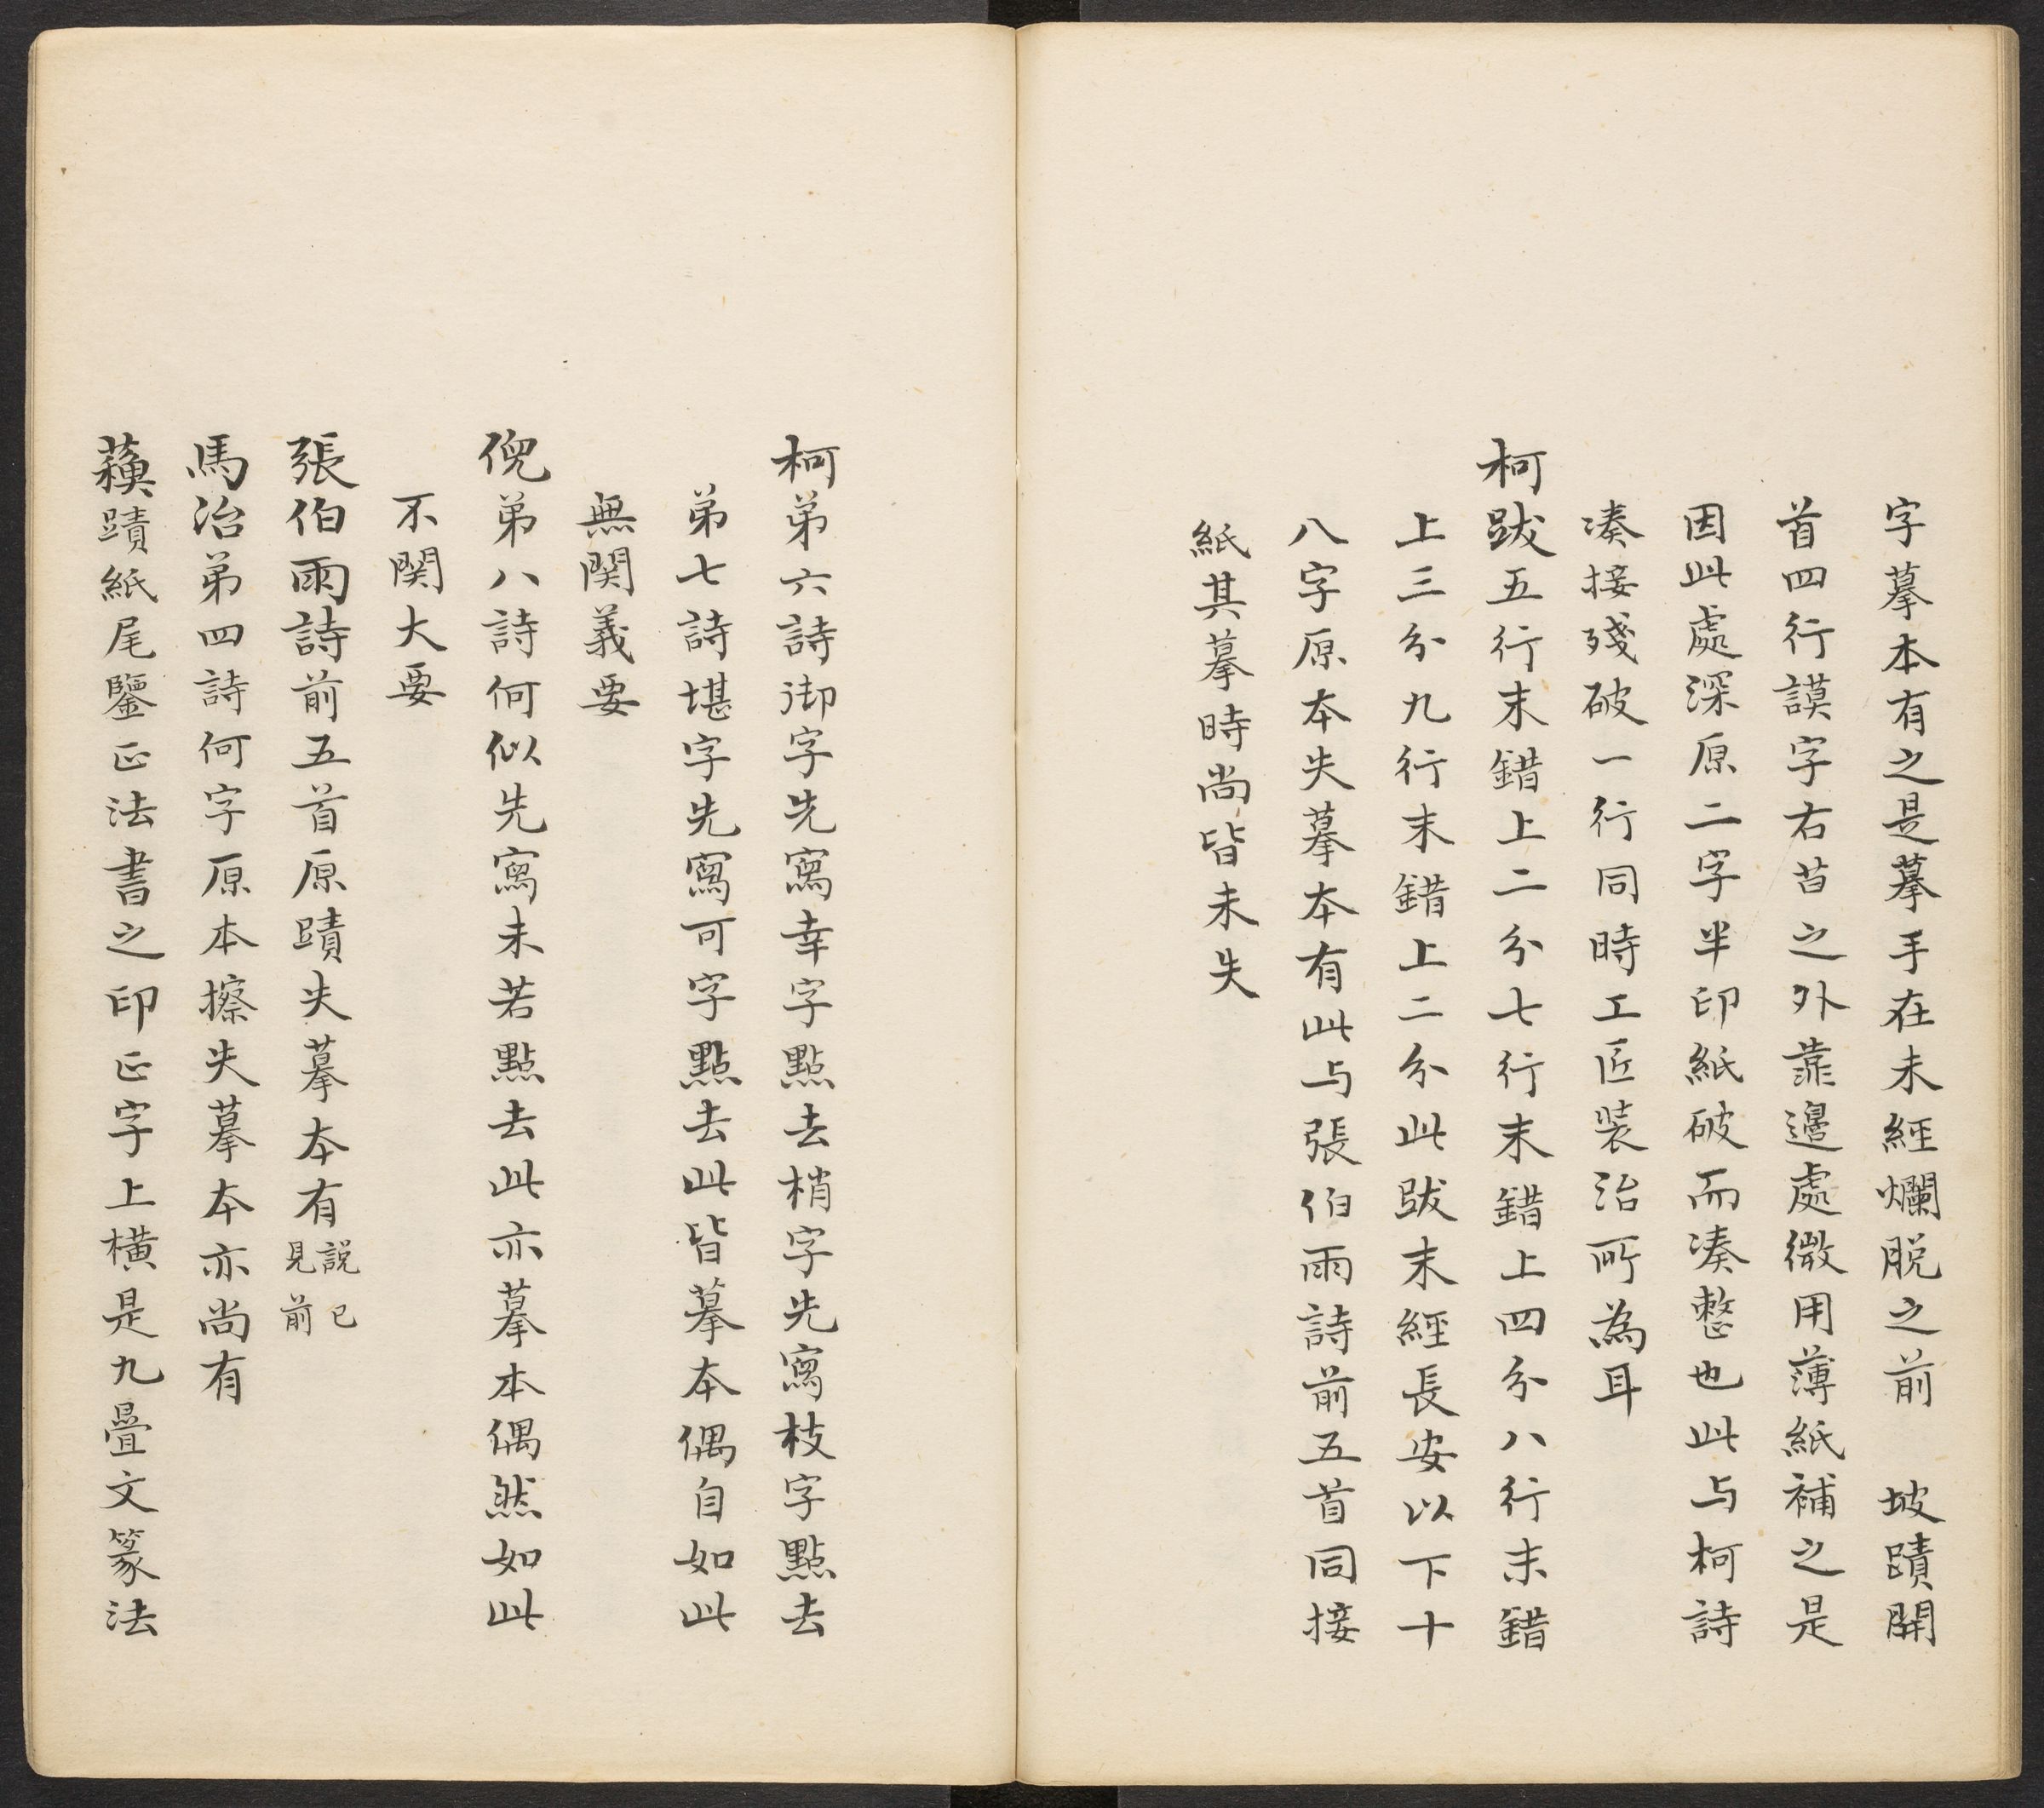 字摹本有之是摹手在未經爛脫之前　坡蹟開
首四行謨字右昔之外靠邊處微用薄紙補之是
因此處深原二字半印紙破而湊整也此与柯詩
湊接殘破一行同時工匠裝治所為耳
柯跋五行末錯上二分七行末錯上四分八行末錯
上三分九行末錯上二分此跋末經長安以下十
八字原本失摹本有此与張伯雨詩前五首同接
紙其摹時尚皆未失
柯弟六詩御字先寫幸字點去梢字先寫枝字點去
弟七詩堪字先寫可字點去此皆摹本偶自如此
無関義要
倪弟八詩何似先寫未若點去此亦摹本偶然如此
不関大要
張伯雨詩前五首原蹟失摹本有說已見前
馬治弟四詩何字原本擦失摹本亦尚有
蘓蹟紙尾鑒正法書之印正字上橫是九疊文篆法